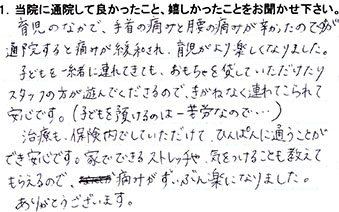 1. 当院に通院して良かったこと、嬉しかったことをお聞かせ下さい。
育児のなかで、手首の痛みと腰の痛みが辛かったのですが
通院すると痛みが緩和され、育児がより楽しくなりました。
子どもを一緒に連れてきても、おもちゃを貸していただけたり
スタッフの方が遊んでくださるので、きがねなく連れてこられて
安心です。(子どもを預けるのは一苦労なので…)
治療も、保険内でしていただけて、ひんぱんに通うことが
でき安心です。家でできるストレッチや、気をつけることも教えて
もらえるので、痛みがずいぶん楽になりました。
ありがとうございます。